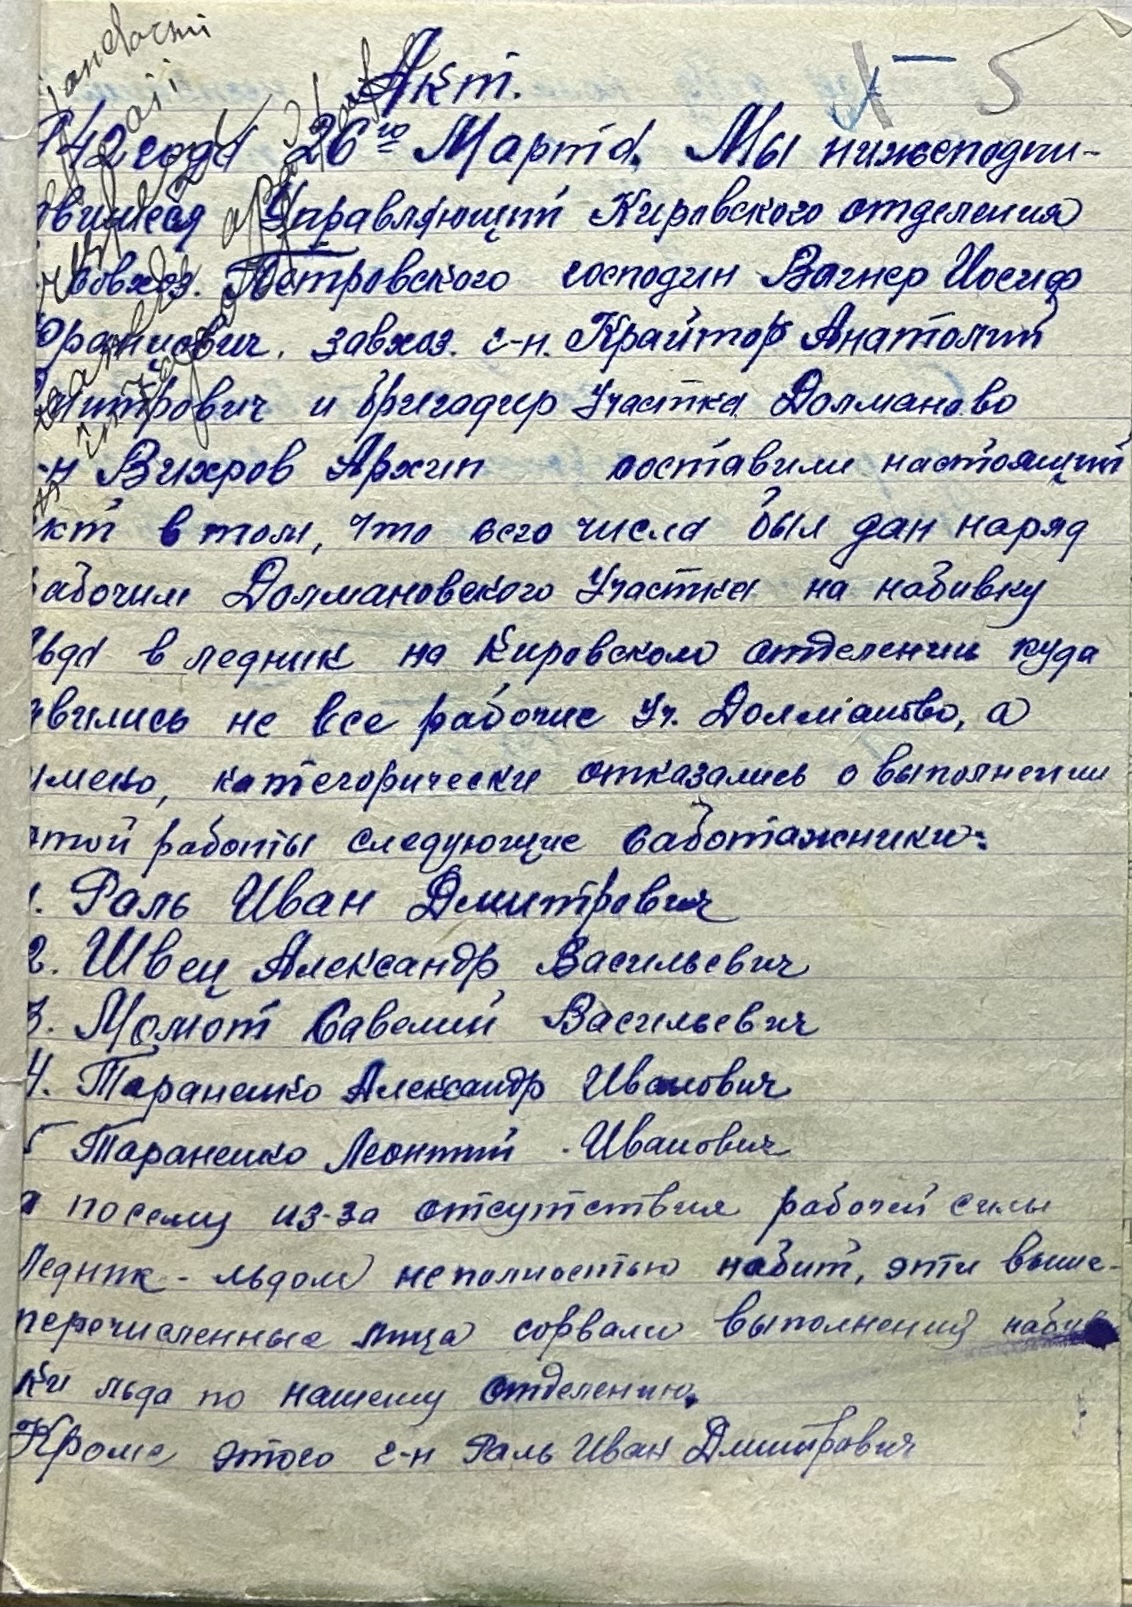 Акт.
X-5
942 года 26го Марта. Мы нижеподпи-
вшиеся Управляющий Кировского отделения
совхоз. Петровского господин Вагнер Иосиф
завхоз. г-н. Крайтор Анатолий
митрович и бригадир Участка Долманово
-н Вихров Архип составили настоящий
кт в том, что сего числа был дан наряд
абочим Долмановского Участка на набивку
льда в ледник на Кировском отделении куда
явились не все рабочие Уч. Долманово, а
имено, категорически отказались о выполнении
этой работы следующие саботажники:
1. Галь Иван Дмитрович
2. Швец Александр Васильевич
3. Момот Савелий Васильевич
4. Тараненко Александр Иванович
5 Тараненко Леонтий Иванович
а посему из-за отсутствия рабочей силы
Ледник - льдом не полностью набит, эти выше-
перечисленные лица сорвали выполнения набив
ки льда по нашему отделению.
Кроме этого г-н Галь Иван Дмитрович